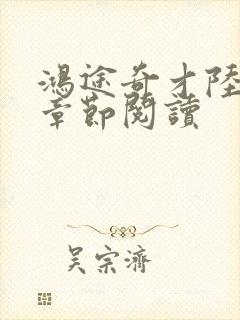 鴻途奇才陸
章節閱讀
吳宗濟